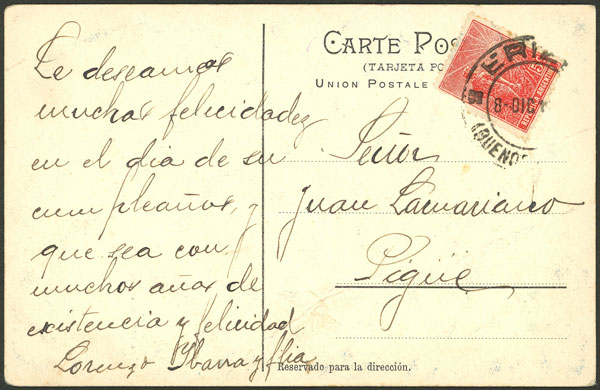 Le deseamos
muchas felicidades
en el dia de su
cumpleaños, y
que sea con
muchos años de
existencia y felicidad
Lorenzo Ybarra y flia
CARTE POS
(TARJETA PO
UNION POSTALE
8-DIC
BUENOS
Señor
Juan Lamariano
Pigüé
Reservado para la dirección.